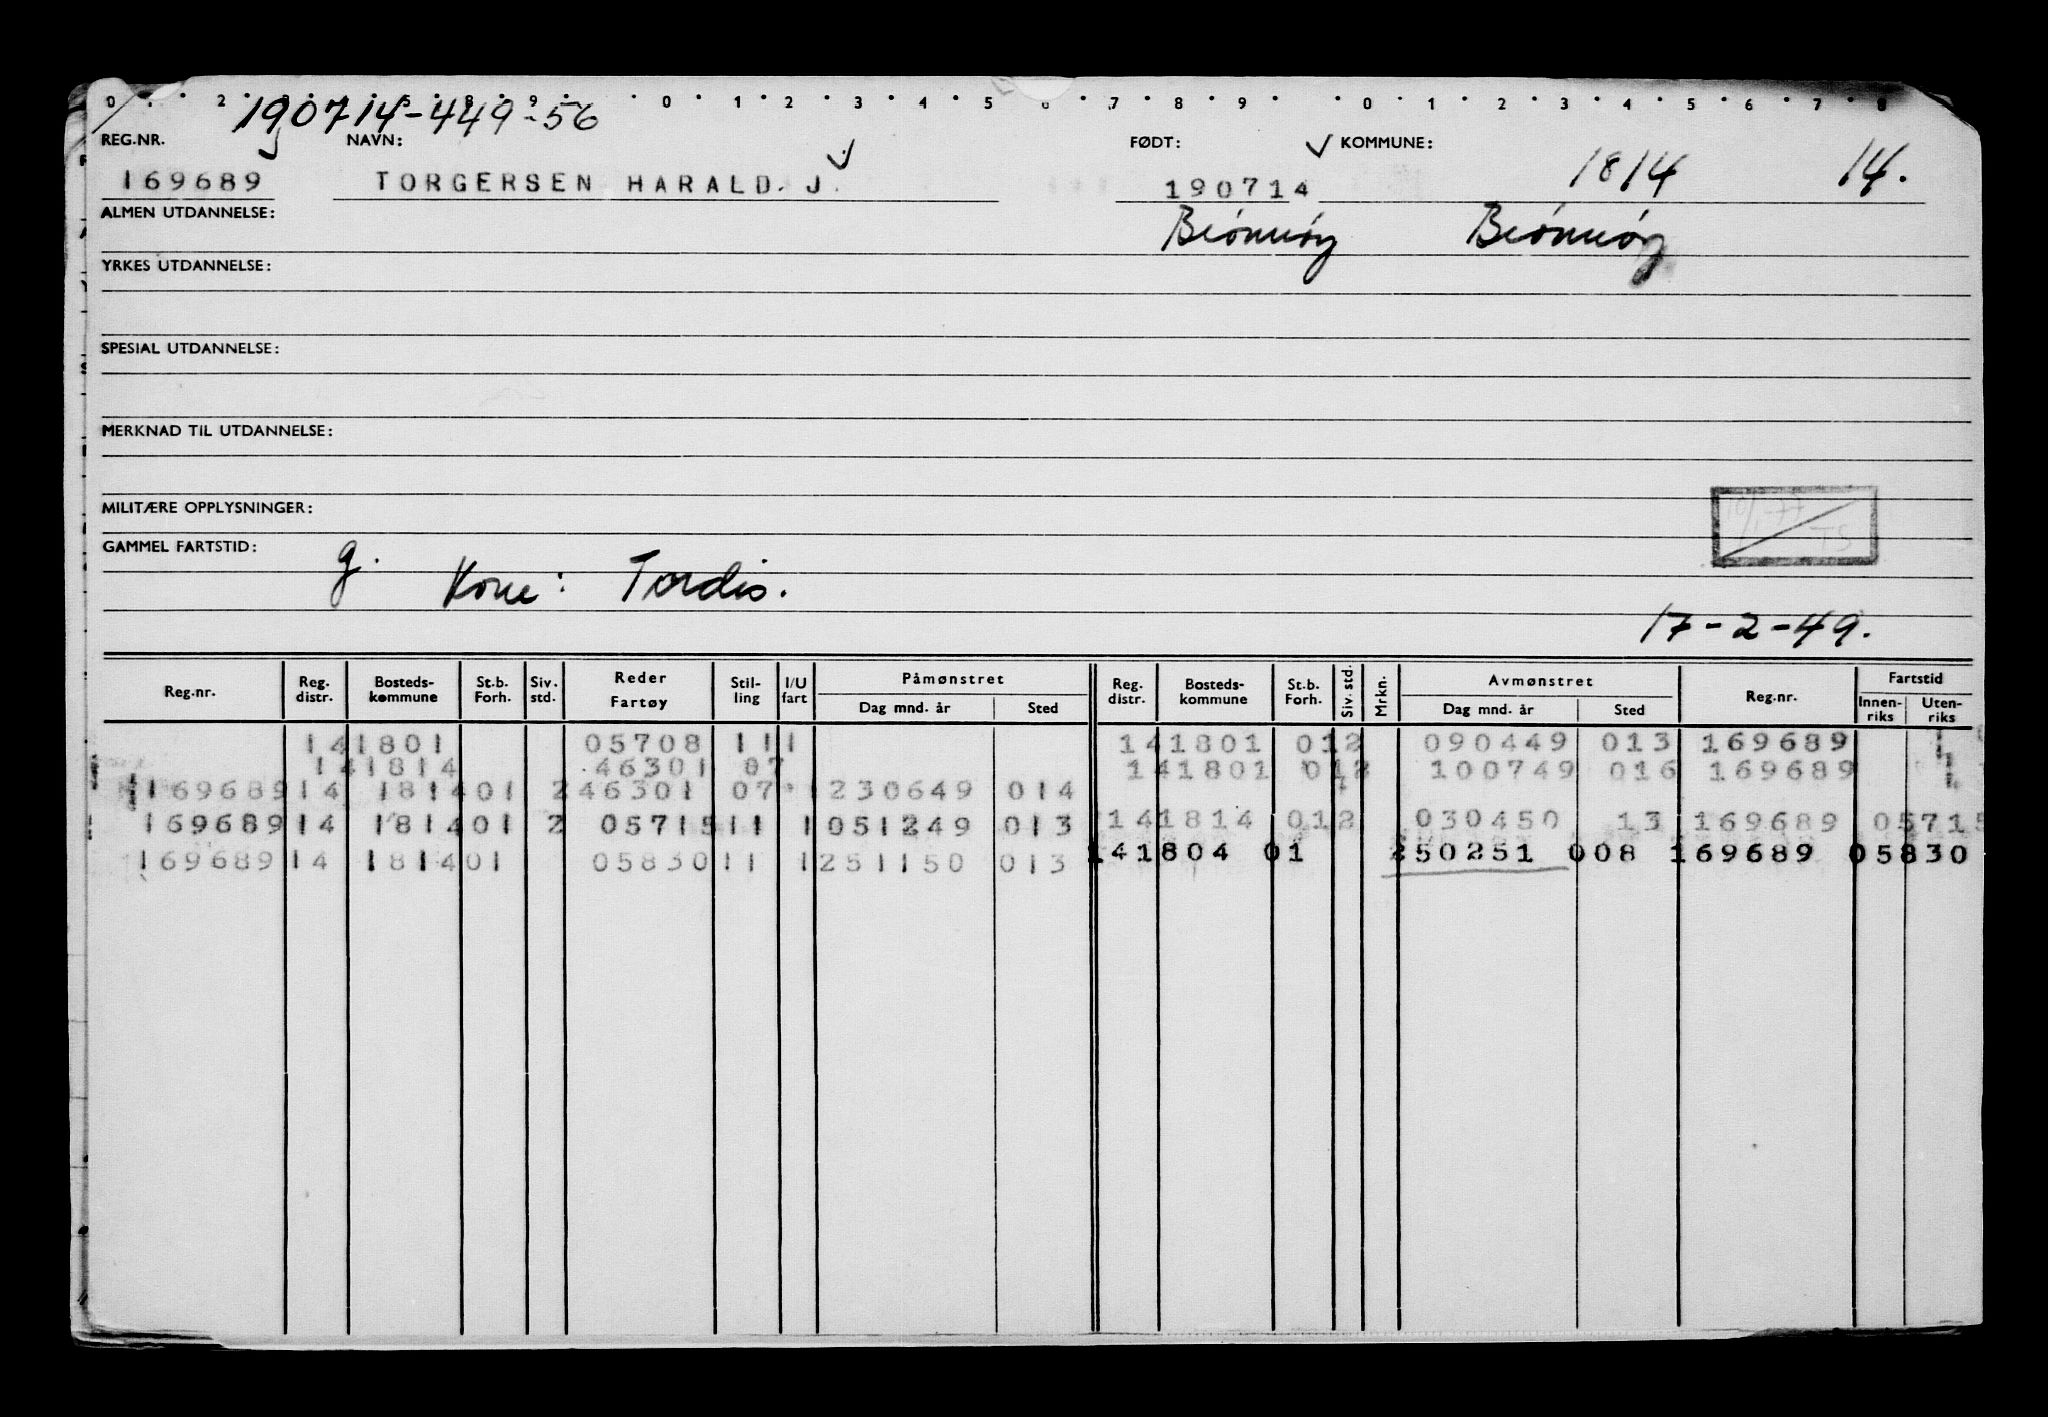 0 . . 2 . . . . 5 . 8 . 9 . . 0 . 1 . 2 . 3 . 4 . 5 . 6 . 7 . 8 . 9 . . 0 . 1 . 2 . 3 . 4 . 5 . 6 . 7 . 8
190714-449-56
REG.NR. NAVN: FØDT: KOMMUNE:
169689 TORGERSEN HARALD. J. 190714 1814 14.
ALMEN UTDANNELSE: Brönnöy Brönnöy
YRKES UTDANNELSE:
SPESIAL UTDANNELSE:
MERKNAD TIL UTDANNELSE:
MILITÆRE OPPLYSNINGER:
TS
GAMMEL FARTSTID: g.
Kone: Tordis.
17-2-49.
Reg.nr. Reg. distr. Bosteds-kommune St.b. Forh. Siv. std. Reder Fartøy Stil-ling I/U fart Påmønstret Dag mnd. år Sted Reg. distr. Bosteds-kommune St.b. Forh. Siv. std. Mrkn. Avmønstret Dag mnd. år Sted Reg.nr. Fartstid Innen-riks Uten-riks
141801 05708 111 141801 012 090449 013 169689
141814 46301 87 141801 012 100749 016 169689
169689 14 181401 2 46301 07 1 230649 014
169689 14 181401 2 05715 11 1 051249 013 141814 012 030450 13 169689 05715
169689 14 181401 05830 11 1 251150 013 141804 01 250251 008 169689 05830